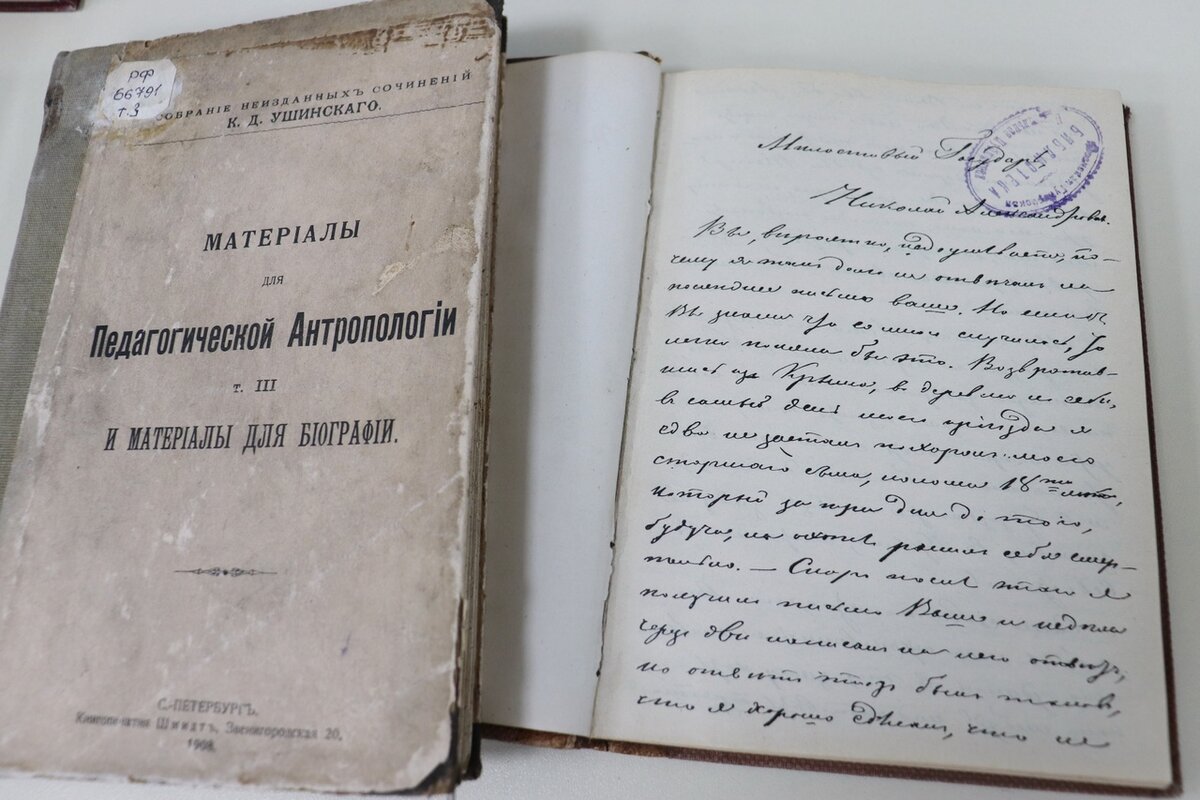 РФ
66791
т.3
СОБРАНІЕ НЕИЗДАННЫХЪ СОЧИНЕНІЙ
К. Д. УШИНСКАГО.
МАТЕРІАЛЫ
ДЛЯ
Педагогической Антропологіи
т. III
И МАТЕРІАЛЫ ДЛЯ БІОГРАФІИ.
С.-ПЕТЕРБУРГЪ.
Книгопечатня Шмидтъ, Звенигородская 20,
1908
БИБЛІОТЕКА
Милостивый Государь
Николай Александровичъ.
Вы, вѣроятно, недоумѣваете, по-
чему я такъ долго не отвѣчалъ на
последнее письмо ваше. Но еслибъ
Вы знали что со мной случилось, то
легко поняли бы это. Возвратив-
шись изъ Крыма, въ деревню къ себѣ,
въ самый день моего пріѣзда я
едва не засталъ похоронъ моего
старшаго сына, юноши 18ти лѣтъ,
который за три дня до того,
будучи на охотѣ ранилъ себя смер-
тельно. — Скоро послѣ этого я
получилъ письмо Ваше и недѣли
черезъ двѣ написалъ на него отвѣтъ,
но отвѣтъ этотъ былъ таковъ,
что я хорошо сдѣлалъ, что не